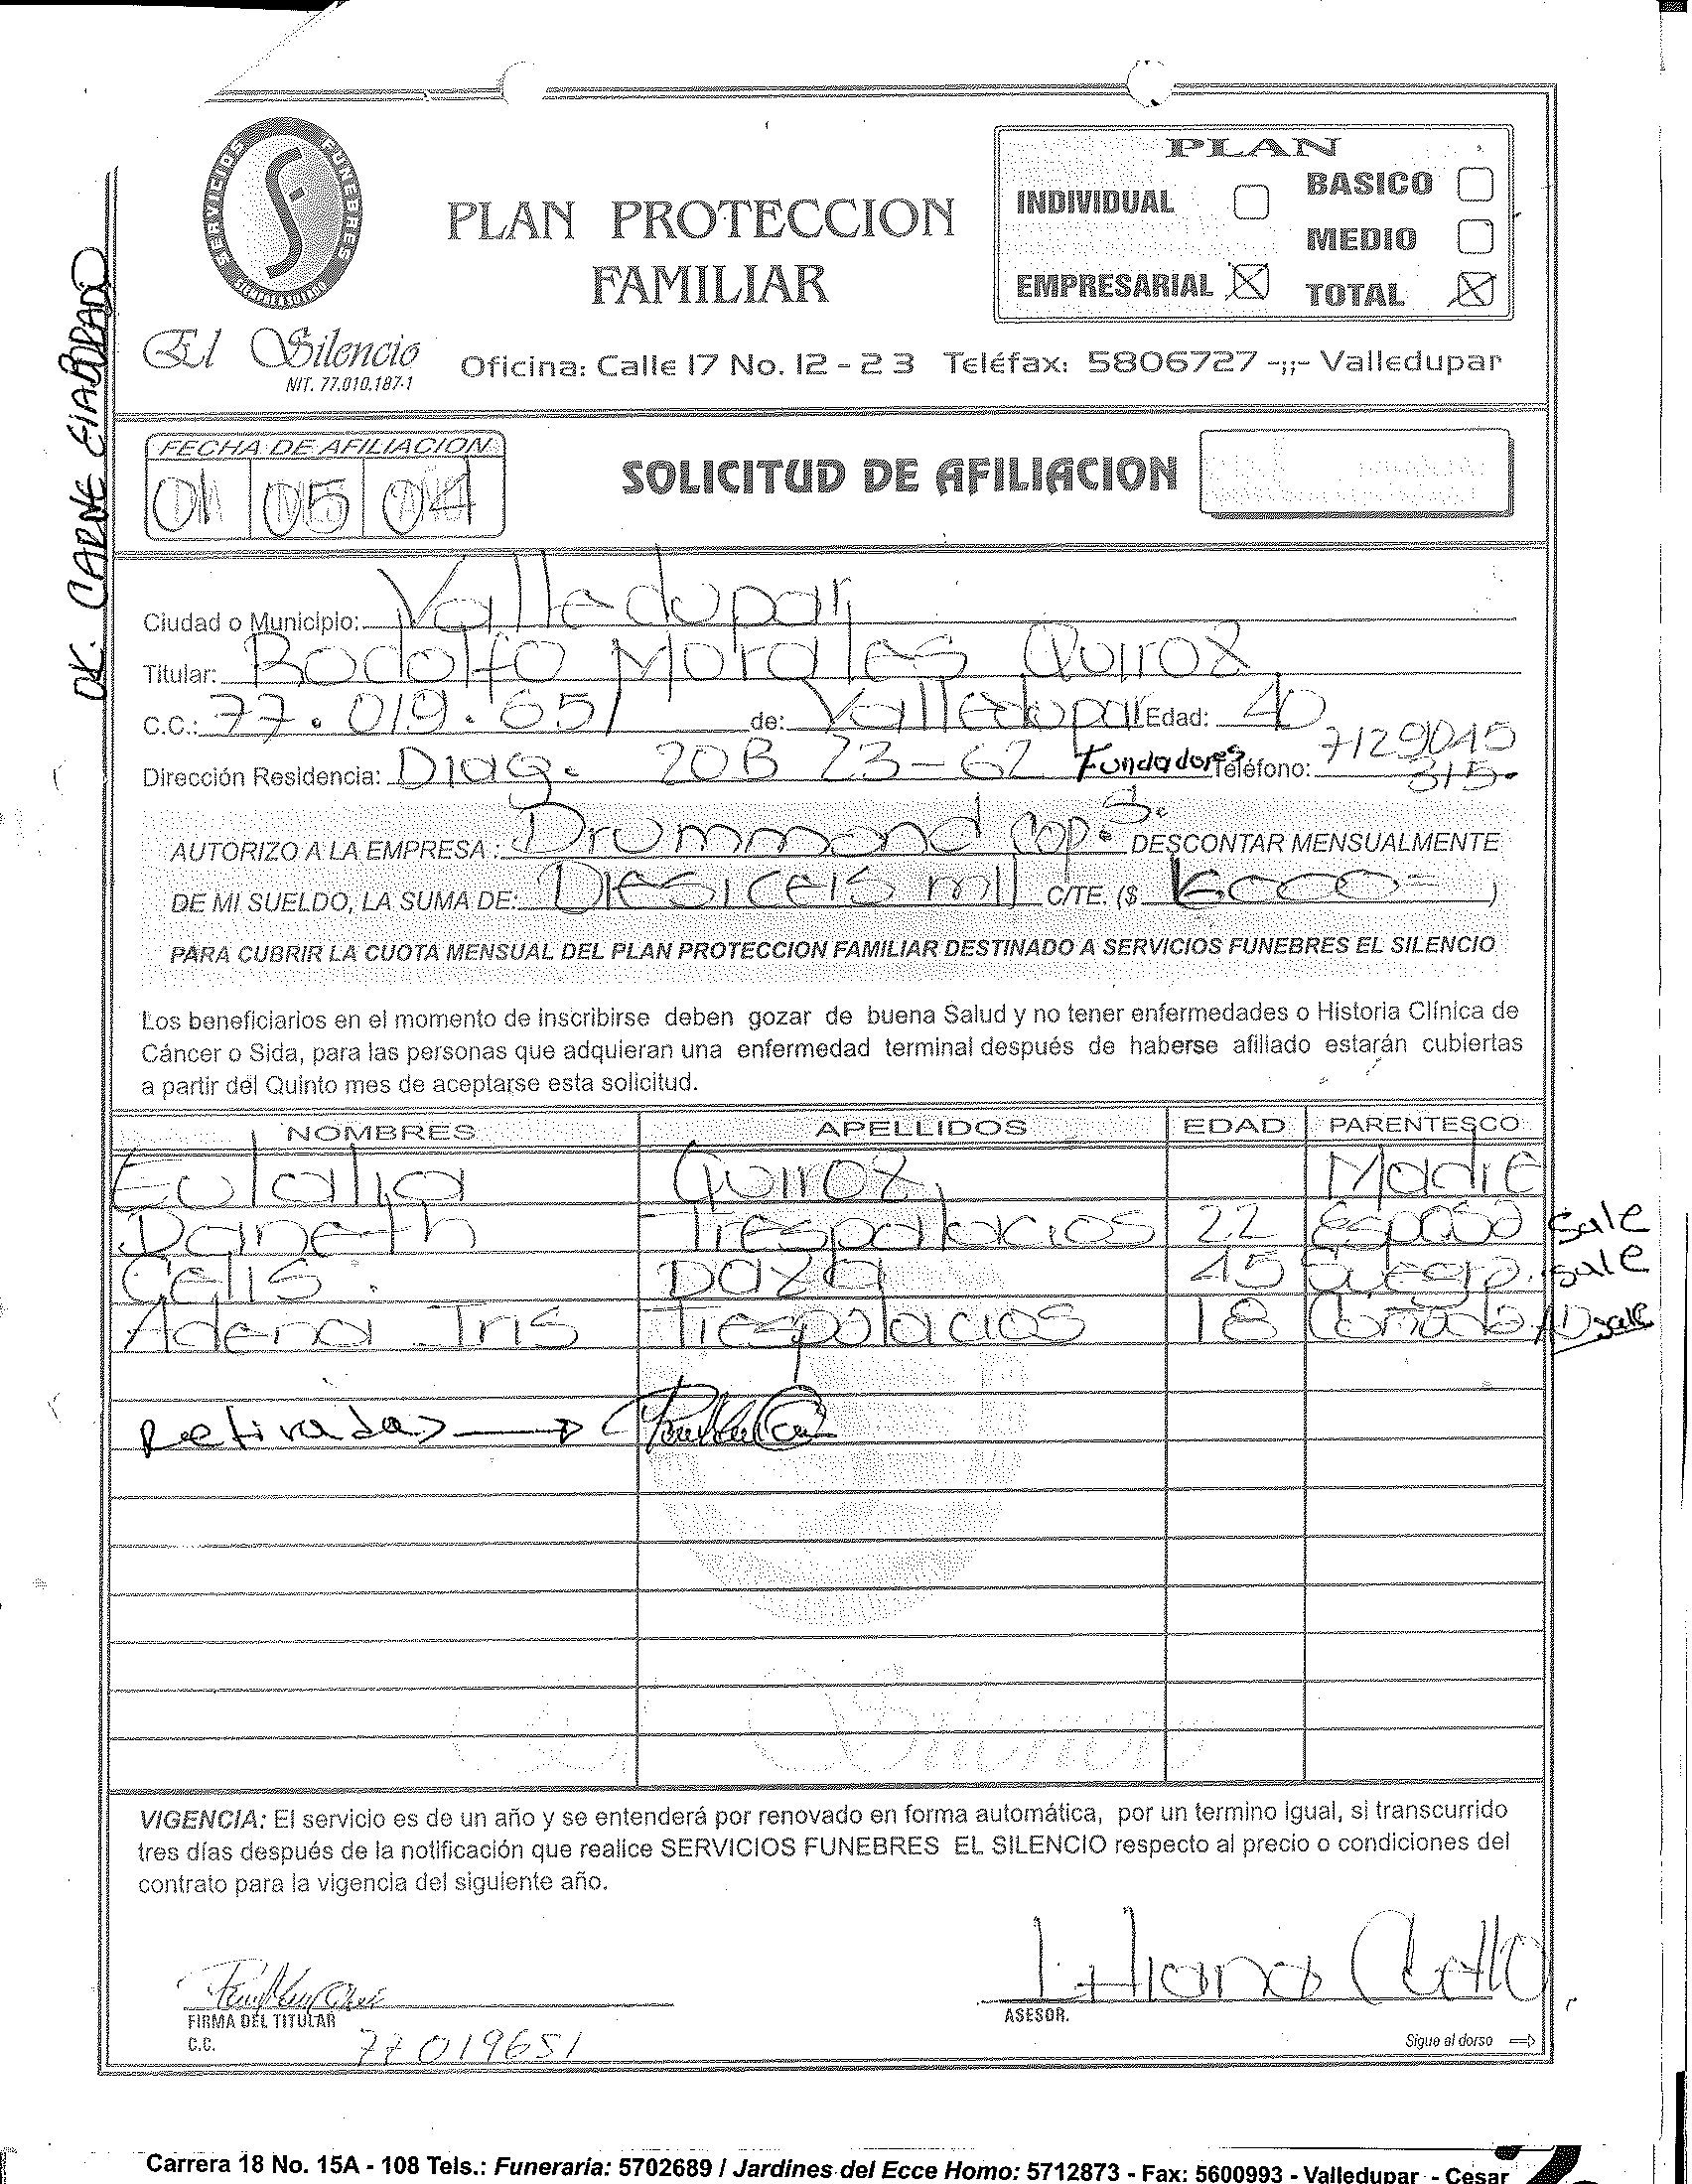 PLAN
INDIVIDUAL
BASICO
MEDIO
EMPRESARIAL
TOTAL
SERVICIOS FUNEBRES
PLAN PROTECCION
FAMILIAR
El Silencio
NIT. 77.010.187-1
Oficina: Calle 17 No. 12 - 23 Teléfax: 5806727 -;;- Valledupar
OK. CARNE ElABORADO
FECHA DE AFILIACION
DIA MES AÑO
01 05 04
SOLICITUD DE AFILIACION
Ciudad o Municipio: Valledupar
Titular: Rodolfo Morales Quiroz
C.C.: 77.019.651 de: Valledupar Edad: 40
Dirección Residencia: Diag. 20B 23-62 Fundadores Teléfono: 7129045
315-
AUTORIZO A LA EMPRESA: Drummond Cop. S. DESCONTAR MENSUALMENTE
DE MI SUELDO, LA SUMA DE: Diesiceis mil C/TE. ($ 16000= )
PARA CUBRIR LA CUOTA MENSUAL DEL PLAN PROTECCION FAMILIAR DESTINADO A SERVICIOS FUNEBRES EL SILENCIO
Los beneficiarios en el momento de inscribirse deben gozar de buena Salud y no tener enfermedades o Historia Clínica de
Cáncer o Sida, para las personas que adquieran una enfermedad terminal después de haberse afiliado estarán cubiertas
a partir del Quinto mes de aceptarse esta solicitud.
NOMBRES APELLIDOS EDAD PARENTESCO
Eulalia Quiroz Madre
Daneth Trespalacios 22 Esposa sale
Celis Daza 45 Suegra sale
Adena Iris Trespalacios 18 Cuñada sale
Retiradas
El Silencio
VIGENCIA: El servicio es de un año y se entenderá por renovado en forma automática, por un termino igual, si transcurrido
tres días después de la notificación que realice SERVICIOS FUNEBRES EL SILENCIO respecto al precio o condiciones del
contrato para la vigencia del siguiente año.
FIRMA DEL TITULAR
C.C. 77019651
ASESOR.
Sigue al dorso
Carrera 18 No. 15A - 108 Tels.: Funeraria: 5702689 / Jardines del Ecce Homo: 5712873 - Fax: 5600993 - Valledupar - Cesar